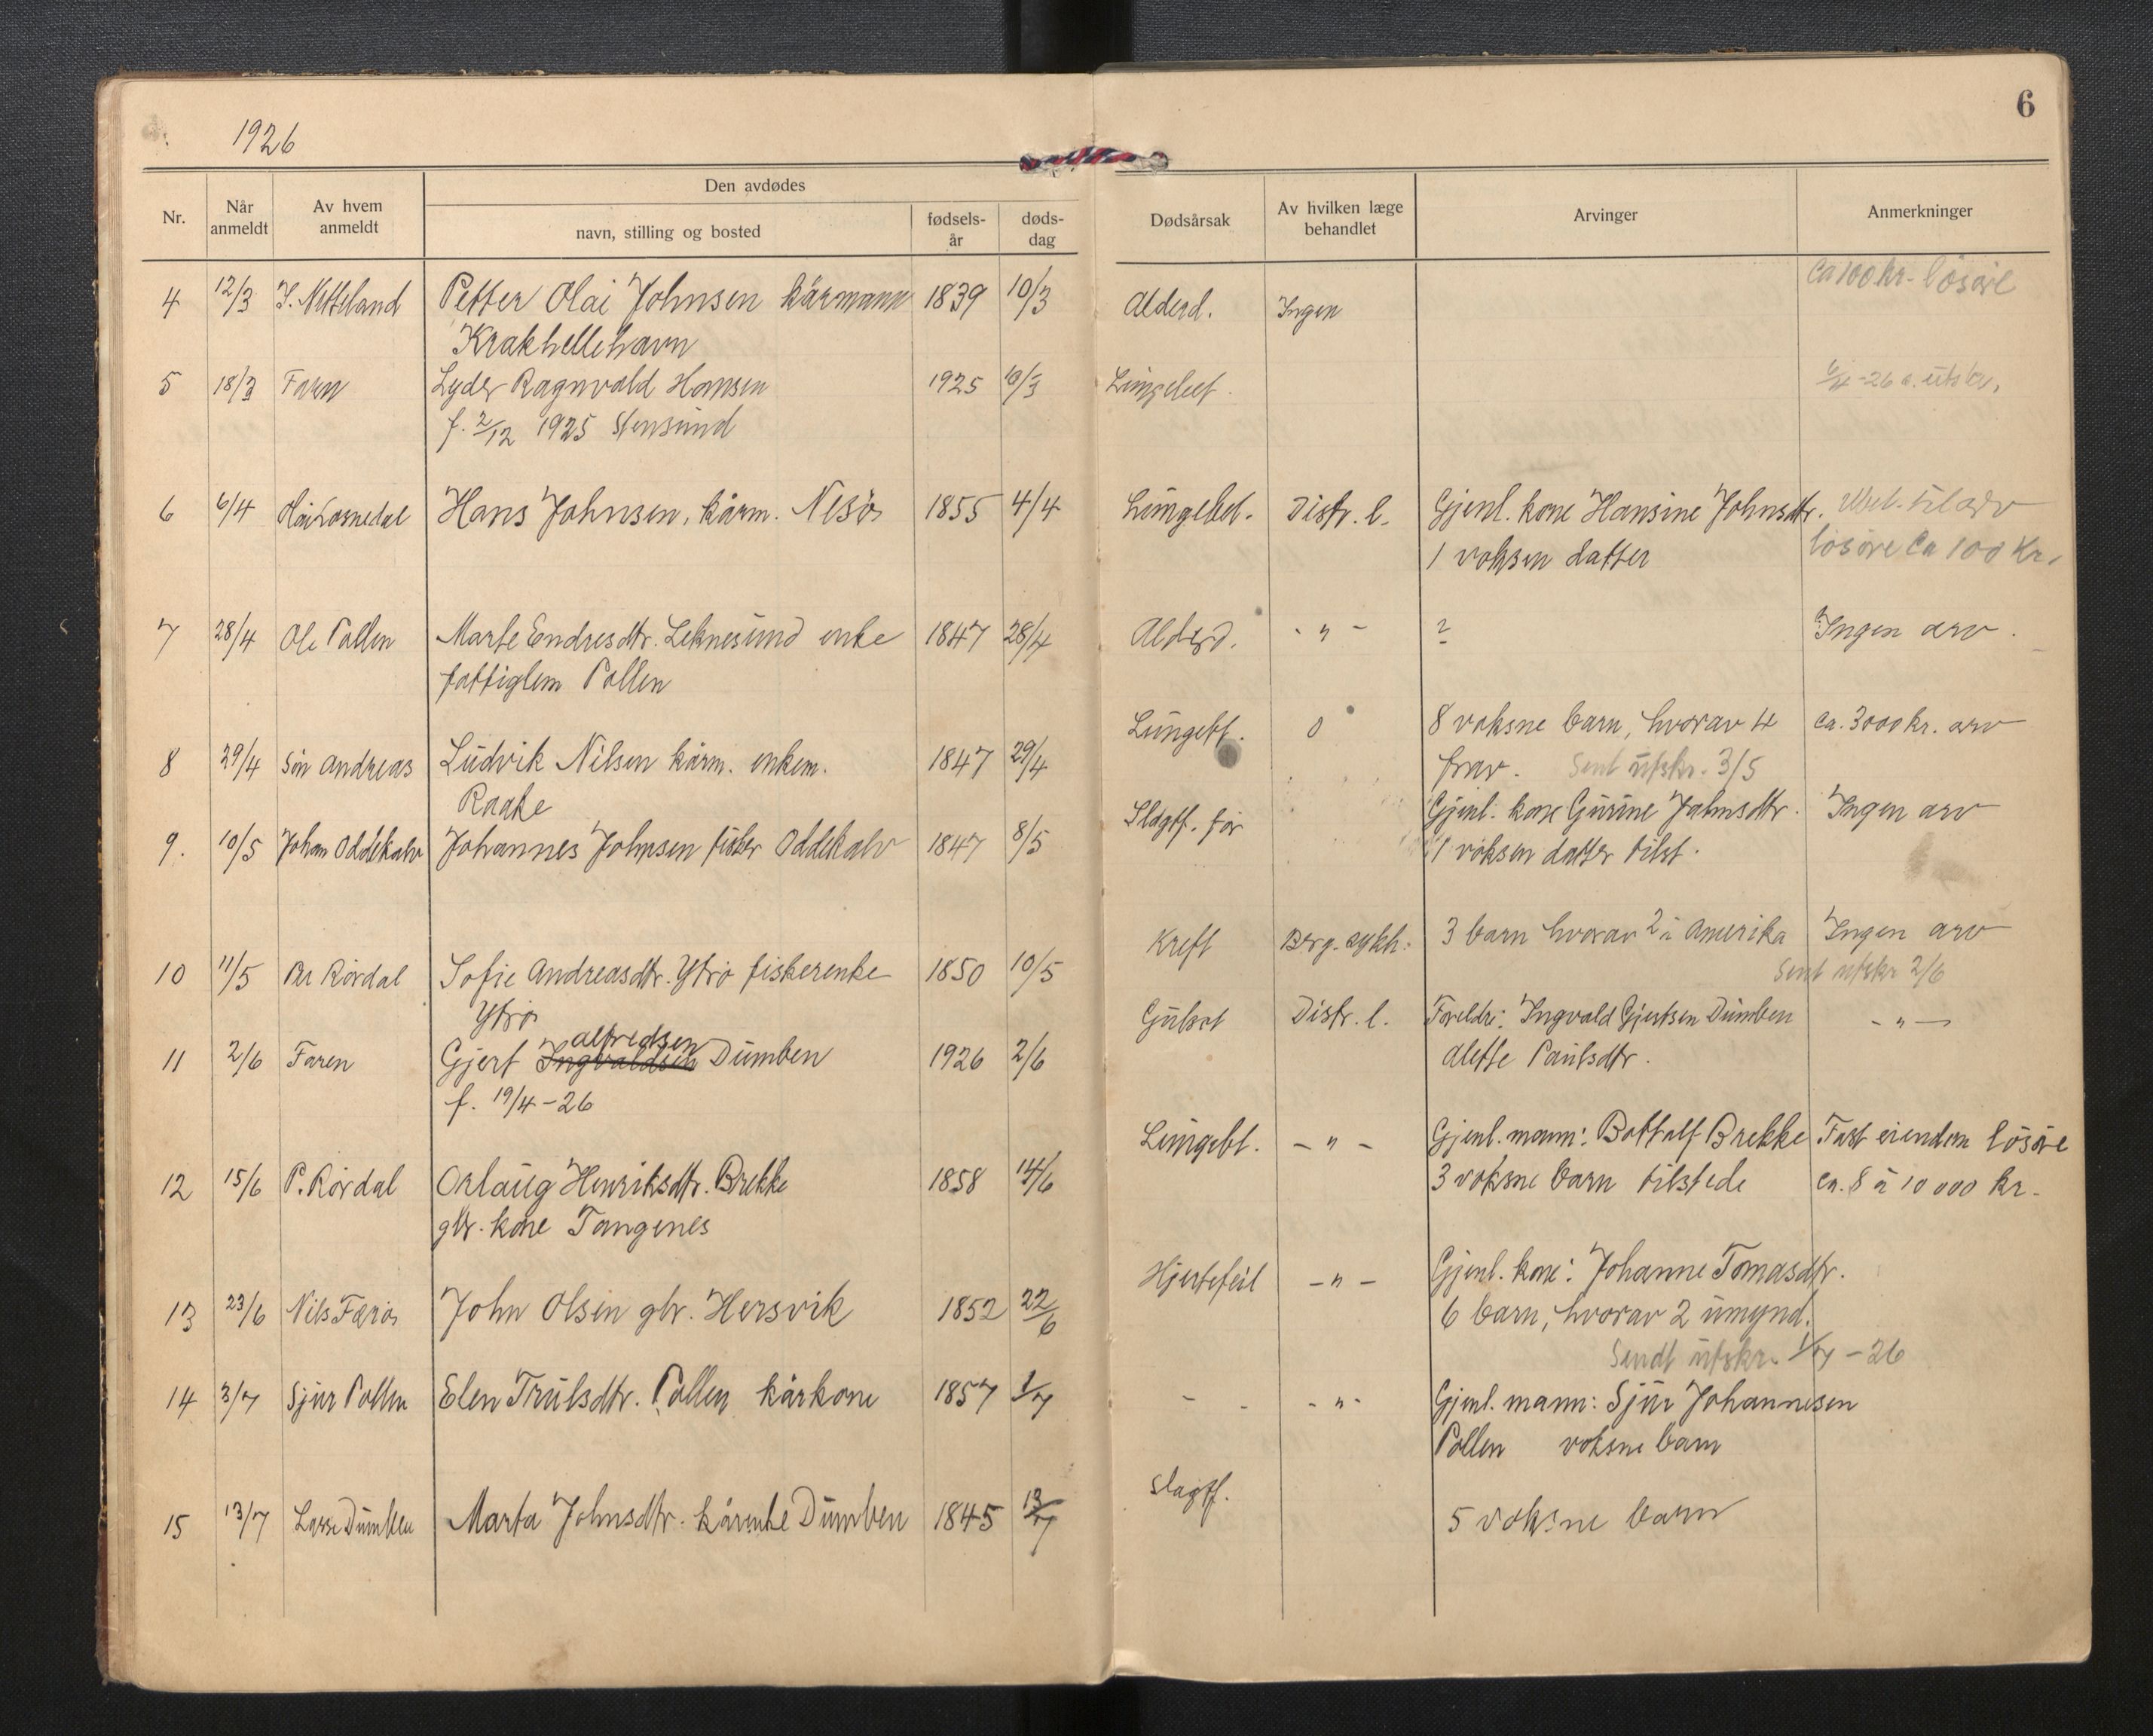 1926
6
Nr.
Når anmeldt
Av hvem anmeldt
Den avdødes
navn, stilling og bosted
fødsels-år
døds-dag
Dødsårsak
Av hvilken læge behandlet
Arvinger
Anmerkninger
4 12/3 J. Netteland Petter Olai Johnsen kårmann 1839 10/3 Alderd. Ingen Ca 100 kr. løsøre
Krakhellehavn
5 18/3 Faren Lyder Ragnvald Hansen 1925 Lungebet. -26 utskr.
f. 2/12 1925 Stensund
6 6/4 Hans Johnsen, kårm. Nesø 1855 4/4 Lungebet. Distr. l. Gjenl. kone Hansine Johnsdtr.
1 voksen datter løsøre Ca 100 Kr.
7 28/4 Ole Pollen Marte Endresdtr. Leknesund enke 1847 28/4 Alderd. - " - ? Ingen arv.
fattiglem Pollen
8 29/4 Søn Andreas Ludvik Nilsen kårm. enkem. 1847 29/4 Lungebt. 0 8 voksne barn, hvorav 4 ca. 3000 kr. arv
Raake frav. Sent utskr. 3/5
9. 10/5 Johan Oddekalv Johannes Johnsen fisker Oddekalv 1847 8/5 Slagtf. før Gjenl. kone Gurine Johnsdtr. Ingen arv
1 voksen datter tilst.
10 11/5 Per Rørdal Sofie Andreasdtr. Ytrø fiskerenke 1850 10/5 Kreft Berg. sykh. 3 barn hvorav 2 i Amerika Ingen arv
Ytrø Sent utskr 2/6
11 2/6 Faren Gjert Ingvaldsen Alfredsen Dumben 1926 2/6 Gulsot Distr. l. Foreldre: Ingvald Gjertsen Dumben - " -
f. 19/4 - 26 Alette Paulsdtr.
12 15/6 P. Rørdal Orlaug Henriksdtr. Brekke 1858 14/6 Lungebt. - " - Gjenl. mann: Bottolf Brekke Fast eiendom løsøre
gbr. kone Tangenes 3 voksne barn tilstede ca. 8 à 10 000 kr.
13 23/6 Nils Færø John Olsen gbr. Hersvik 1852 22/6 Hjertefeil - " - Gjenl. kone: Johanne Tomasdtr.
6 barn, hvorav 2 umynd.
Sendt utskr. 1/7 - 26
14 3/7 Sjur Pollen Elen Trulsdtr. Pollen kårkone 1857 1/7 - - - " - Gjenl. mann: Sjur Johannesen
Pollen voksne barn
15 13/7 Lasse Dumben Marta Johnsdtr. kårenke Dumben 1845 13/7 Slagtf. 5 voksne barn